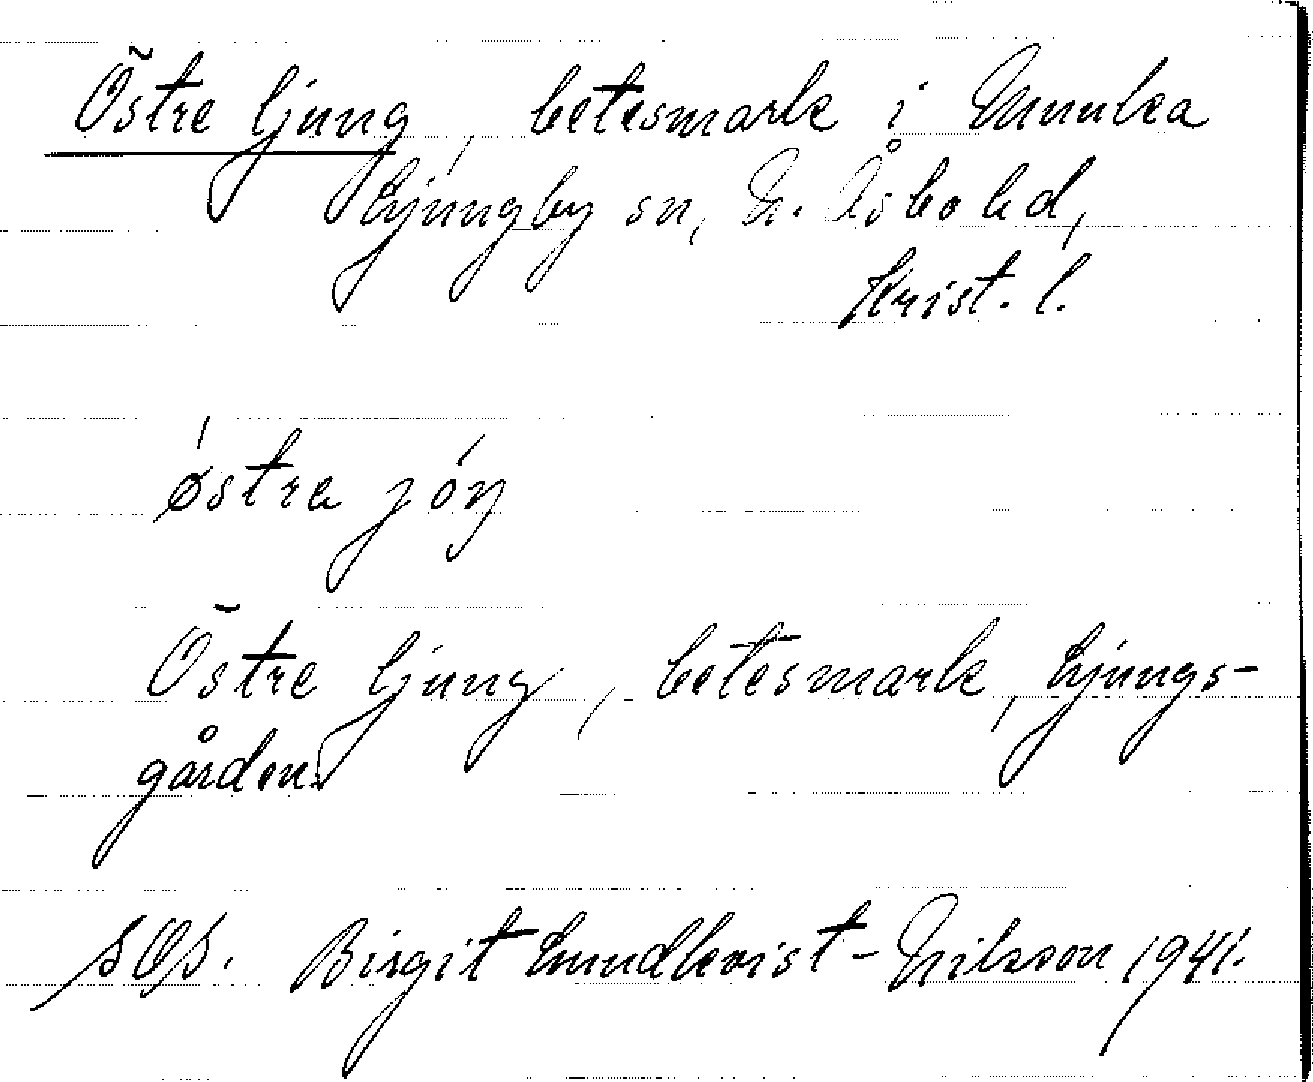 Östre ljung, betesmark i Munka
Ljungby sn, N. Åsbo hd,
Krist. l.
østra jóŋ
Östre ljung, betesmark, Ljungs-
gården.
SOS. Birgit Lundkvist-Nilsson 1941.